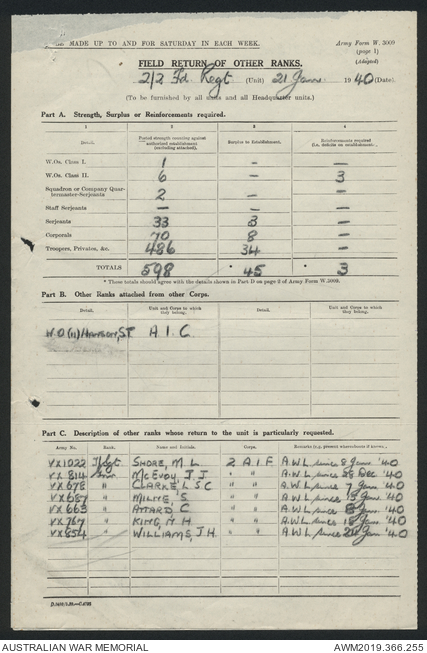 MADE UP TO AND FOR SATURDAY IN EACH WEEK.
Army Form W. 3009
(page 1)
(Adapted)
FIELD RETURN OF OTHER RANKS.
2/2 Fd Regt (Unit) 21 June 1940 (Date)
(To be furnished by all units and all Headquarter units.)
Part A. Strength, Surplus or Reinforcements required.
1 2 3 4
Detail. Posted strength counting against authorized establishment (excluding attached). Surplus to Establishment. Reinforcements required (i.e. deficits on establishment).
W.Os. Class I. 1 — —
W.Os. Class II. 6 — 3
Squadron or Company Quar-
termaster-Serjeants 2 — —
Staff Serjeants — — —
Serjeants 33 3 —
Corporals 70 8 —
Troopers, Privates, &c. 486 34 —
TOTALS 598 * 45 * 3
* These totals should agree with the details shown in Part D on page 2 of Army Form W.3009.
Part B. Other Ranks attached from other Corps.
Detail. Unit and Corps to which they belong. Detail. Unit and Corps to which they belong.
W.O (II) S.T A. I. C.
Part C. Description of other ranks whose return to the unit is particularly requested.
Army No. Rank. Name and Initials. Corps. Remarks (e.g. present whereabouts if known.)
VX1022 SHORE, M. L 2 A.I.F A.W.L since 8 June '40
VX814 Gnr McEVOY, J. J. " " A.W.L since 28 Dec '40
VX678 " CLARKE, L. S. C " " A.W.L since 7 June '40
VX687 " MILNE, S. " " A.W.L since 13 June '40
VX663 " ATTARD, C " " A.W.L since June '40
VX767 " KING, N. H. " " A.W.L since 18 June '40
VX854 " WILLIAMS, J. H. " " A.W.L since 20 June '40
AUSTRALIAN WAR MEMORIAL
AWM2019.366.255